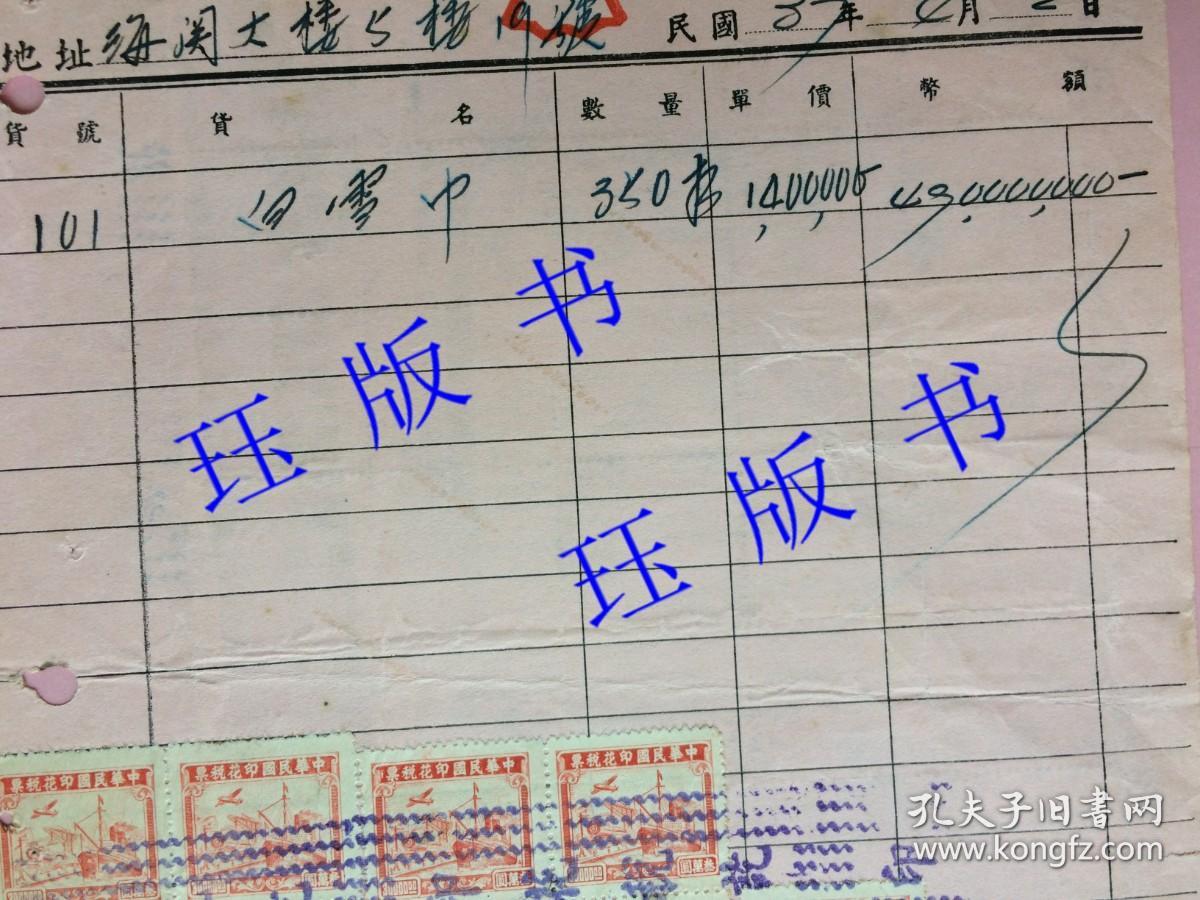 地址 海関大楼5楼19號 民國37年4月2日
貨號 貨名 數量 單價 幣額
101 白雪巾 350 1,400,000 490,000,000-
珏版书
珏版书
中華民國印花税票 中華民國印花税票 中華民國印花税票 中華民國印花税票
孔夫子旧書网
www.kongfz.com